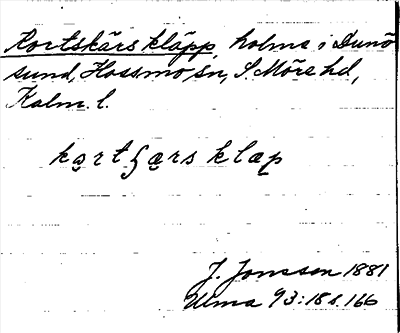 Kortskärs kläpp, holme i Dunö
sund, Hossmo sn, S. Möre hd,
Kalm. l.
kortʂærs klæp
J. Jonsson 1881
Ulma 93:18 s. 166